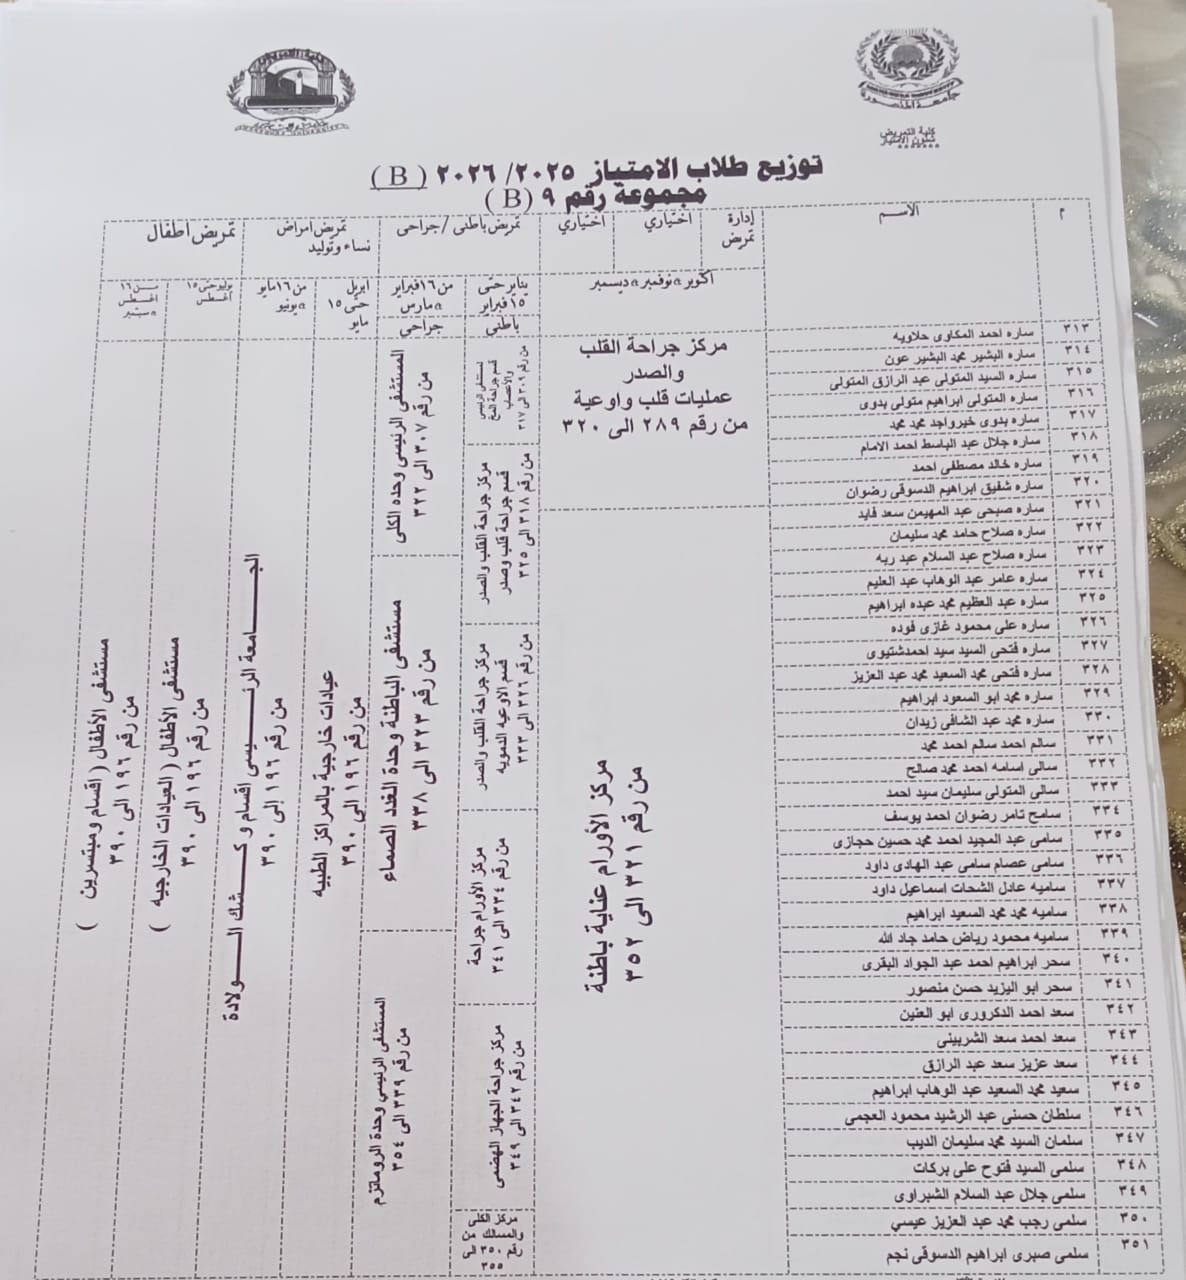 جامعة المنصورة
كلية التمريض
شئون الامتياز
توزيع طلاب الامتياز ٢٠٢٥/ ٢٠٢٦ ( B )
مجموعة رقم ٩ ( B )
م
الاسم
إدارة تمريض
اختياري
اختياري
تمريض باطنى / جراحى
تمريض امراض نساء وتوليد
تمريض اطفال
أكتوبر & نوفمبر & ديسمبر
يناير حتى ١٥ فبراير
باطنى
من ١٦ فبراير & مارس
جراحى
ابريل حتى ١٥ مايو
من ١٦ مايو & يونيو
يوليو حتى ١٥ اغسطس
من ١٦ اغسطس & سبتمبر
٣١٣ ساره احمد المكاوى حلاويه
٣١٤ ساره البشير محمد البشير عون
٣١٥ ساره السيد المتولى عبد الرازق المتولى
٣١٦ ساره المتولى ابراهيم متولى بدوى
٣١٧ ساره بدوى خيرواجد محمد محمد
٣١٨ ساره جلال عبد الباسط احمد الامام
٣١٩ ساره خالد مصطفى احمد
٣٢٠ ساره شفيق ابراهيم الدسوقى رضوان
٣٢١ ساره صبحى عبد المهيمن سعد فايد
٣٢٢ ساره صلاح حامد محمد سليمان
٣٢٣ ساره صلاح عبد السلام عبد ربه
٣٢٤ ساره عامر عبد الوهاب عبد العليم
٣٢٥ ساره عبد العظيم محمد عبده ابراهيم
٣٢٦ ساره على محمود غازى فوده
٣٢٧ ساره فتحى السيد سيد احمدشتيوى
٣٢٨ ساره فتحى محمد السعيد محمد عبد العزيز
٣٢٩ ساره محمد ابو السعود ابراهيم
٣٣٠ ساره محمد عبد الشافى زيدان
٣٣١ سالم احمد سالم احمد محمد
٣٣٢ سالى اسامه احمد محمد صالح
٣٣٣ سالى المتولى سليمان سيد احمد
٣٣٤ سامح تامر رضوان احمد يوسف
٣٣٥ سامى عبد المجيد احمد محمد حسين حجازى
٣٣٦ سامى عصام سامى عبد الهادى داود
٣٣٧ ساميه عادل الشحات اسماعيل داود
٣٣٨ ساميه محمد محمد السعيد ابراهيم
٣٣٩ ساميه محمود رياض حامد جاد الله
٣٤٠ سحر ابراهيم احمد عبد الجواد البقرى
٣٤١ سحر ابو اليزيد حسن منصور
٣٤٢ سعد احمد الدكرورى ابو العنين
٣٤٣ سعد احمد سعد الشربينى
٣٤٤ سعد عزيز سعد عبد الرازق
٣٤٥ سعيد محمد السعيد عبد الوهاب ابراهيم
٣٤٦ سلطان حسنى عبد الرشيد محمود العجمى
٣٤٧ سلمان السيد محمد سليمان الديب
٣٤٨ سلمى السيد فتوح على بركات
٣٤٩ سلمى جلال عبد السلام الشبراوى
٣٥٠ سلمى رجب محمد عبد العزيز عيسي
٣٥١ سلمى صبرى ابراهيم الدسوقى نجم
مركز جراحة القلب
والصدر
عمليات قلب واوعية
من رقم ٢٨٩ الى ٣٢٠
مركز الأورام عناية باطنة
من رقم ٣٢١ الى ٣٥٢
مستشفى الرئيسي
قسم جراحة المخ
والأعصاب
من رقم ٣٠٩ الى ٣١٧
مركز جراحة القلب والصدر
قسم جراحة قلب وصدر
من رقم ٣١٨ الى ٣٢٥
مركز جراحة القلب والصدر
قسم الاوعيه الدمويه
من رقم ٣٢٦ الى ٣٣٣
مركز الأورام جراحة
من رقم ٣٣٤ الى ٣٤١
مركز جراحة الجهاز الهضمى
من رقم ٣٤٢ الى ٣٤٩
مركز الكلى
والمسالك من
رقم ٣٥٠ الى
٣٥٥
المستشفى الرئيسى وحده الكلى
من رقم ٣٠٧ الى ٣٢٢
مستشفى الباطنة وحدة الغدد الصماء
من رقم ٣٢٣ الى ٣٣٨
المستشفى الرئيسي وحدة الروماتزم
من رقم ٣٣٩ الى ٣٥٤
عيادات خارجية بالمراكز الطبيه
من رقم ١٩٦ الى ٣٩٠
الجـــامعة الرئـــيسى اقسام وكـــشك الـــولادة
من رقم ١٩٦ إلى ٣٩٠
مستشفى الأطفال ( العيادات الخارجيه )
من رقم ١٩٦ الى ٣٩٠
مستشفى الأطفال ( اقسام ومبتسرين )
من رقم ١٩٦ الى ٣٩٠